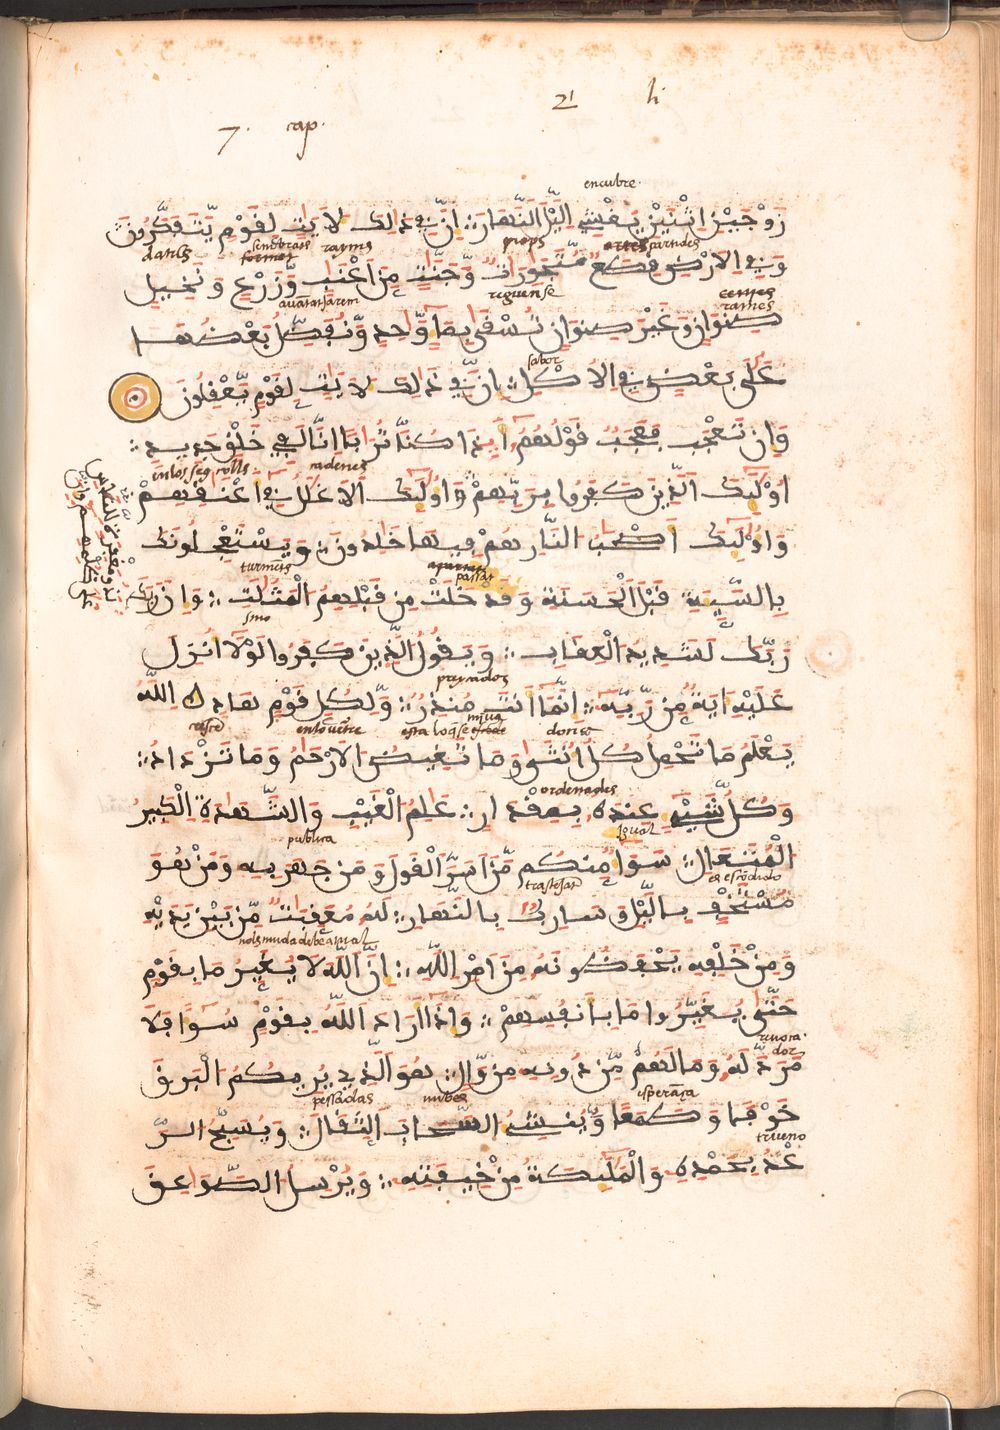 21 h
7. cap.
encubre
زَوْجَيْنِ اثْنَيْنِ يُغْشِي الَّيْلَ النَّهَارَ إِنَّ فِي ذَالِكَ لَأَيَٰتٍ لِّقَوْمٍ يَتَفَكَّرُونَ
datils sembrats formet rayms props partides
وَفِي الْأَرْضِ قِطَعٌ مُّتَجَٰوِرَاتٌ وَّجَنَّٰتٌ مِّنْ أَعْنَٰبٍ وَّزَرْعٍ وَنَخِيلٍ
avantatjarem reguense rames
صِنْوَانٍ وَغَيْرِ صِنْوَانٍ تُسْقَىٰ بِمَاءٍ وَّاحِدٍ وَّنُفَضِّلُ بَعْضَهَا
sabor
عَلَىٰ بَعْضٍ فِي الْأُكْلِ إِنَّ فِي ذَالِكَ لَأَيَٰتٍ لِّقَوْمٍ يَّعْقِلُونَ
وَإِن تَعْجَبْ فَعَجَبٌ قَوْلُهُمْ أَ.ذَا كُنَّا تُرَابًا إِنَّا لَفِي خَلْقٍ جَدِيدٍ
enlos seus colls cadenes
أُوْلَٰئِكَ الَّذِينَ كَفَرُوا بِرَبِّهِمْ وَأُوْلَٰئِكَ الْأَغْلَٰلُ فِي أَعْنَٰقِهِمْ
وَأُوْلَٰئِكَ أَصْحَٰبُ النَّارِ هُمْ فِيهَا خَٰلِدُونَ وَيَسْتَعْجِلُونَكَ
turmets passat
بِالسَّيِّئَةِ قَبْلَ الْحَسَنَةِ وَقَدْ خَلَتْ مِن قَبْلِهِمُ الْمَثُلَٰتُ وَإِنَّ رَبَّكَ
لَذُو مَغْفِرَةٍ لِّلنَّاسِ
عَلَىٰ ظُلْمِهِمْ وَإِنَّ
sino
رَبَّكَ لَشَدِيدُ الْعِقَابِ وَيَقُولُ الَّذِينَ كَفَرُوا لَوْلَا أُنزِلَ
preycados
عَلَيْهِ ءَايَةٌ مِّن رَّبِّهِ إِنَّمَا أَنتَ مُنذِرٌ وَّلِكُلِّ قَوْمٍ هَادٍ اللَّهُ
creisce enlo vetre esta lo que se dona
يَعْلَمُ مَا تَحْمِلُ كُلُّ أُنثَىٰ وَمَا تَغِيضُ الْأَرْحَامُ وَمَا تَزْدَادُ
ordenades
وَكُلُّ شَيْءٍ عِندَهُ بِمِقْدَارٍ عَٰلِمُ الْغَيْبِ وَالشَّهَٰدَةِ الْكَبِيرُ
publica igual
الْمُتَعَالِ سَوَاءٌ مِّنكُم مَّنْ أَسَرَّ الْقَوْلَ وَمَن جَهَرَ بِهِ وَمَنْ هُوَ
es escodido
مُسْتَخْفٍ بِالَّيْلِ وَسَارِبٌ بِالنَّهَارِ لَهُ مُعَقِّبَٰتٌ مِّن بَيْنِ يَدَيْهِ
nols muda de be a mal
وَمِنْ خَلْفِهِ يَحْفَظُونَهُ مِنْ أَمْرِ اللَّهِ إِنَّ اللَّهَ لَا يُغَيِّرُ مَا بِقَوْمٍ
حَتَّىٰ يُغَيِّرُوا مَا بِأَنفُسِهِمْ وَإِذَا أَرَادَ اللَّهُ بِقَوْمٍ سُوءًا فَلَا
مَرَدَّ لَهُ وَمَا لَهُم مِّن دُونِهِ مِن وَّالٍ هُوَ الَّذِي يُرِيكُمُ الْبَرْقَ
pessadas nubes esperāça
خَوْفًا وَطَمَعًا وَّيُنشِئُ السَّحَابَ الثِّقَالَ وَيُسَبِّحُ الرَّ
trueno
عْدُ بِحَمْدِهِ وَالْمَلَٰئِكَةُ مِنْ خِيفَتِهِ وَيُرْسِلُ الصَّوَاعِقَ